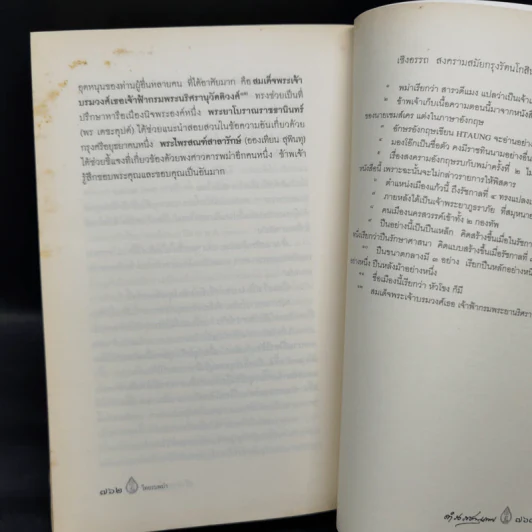 อุดหนุนของท่านผู้อื่นหลายคน ที่ได้อาศัยมาก คือ สมเด็จพระเจ้า
บรมวงศ์เธอเจ้าฟ้ากรมพระนริศรานุวัดติวงศ์ ทรงช่วยเป็นที่
ปรึกษาหารือเนืองนิจพระองค์หนึ่ง พระยาโบราณราชธานินทร์
(พร เดชะคุปต์) ได้ช่วยแนะนำสอบสวนในข้อความอันเกี่ยวด้วย
กรุงศรีอยุธยาคนหนึ่ง พระไพรสณฑ์สาลารักษ์ (อองเทียน สุพินทุ)
ได้ช่วยชี้แจงที่เกี่ยวข้องด้วยพงศาวดารพม่าอีกคนหนึ่ง ข้าพเจ้า
รู้สึกขอบพระคุณและขอบคุณเป็นอันมาก
๗๖๒ ไทยรบพม่า
เชิงอรรถ สงครามสมัยกรุงรัตนโกสิน
พม่าเรียกว่า สารวดีแมง แปลว่าเป็นเจ้า
ข้าพเจ้าเก็บเนื้อความตอนนี้มาจากหนังสือ
ของนายเชมส์เคร แต่งในภาษาอังกฤษ
อักษรอังกฤษเขียน HTAUNG จะอ่านอย่าง
มองโอ๊กเป็นชื่อตัว คงมีราชทินนามอย่างอื่น
เรื่องสงครามอังกฤษรบกับพม่าครั้งที่ ๒
หนังสือนี้ เพราะฉะนั้นจะไม่กล่าวรายการให้พิสดาร
ตำแหน่งเมืองแก้วนี้ ถึงรัชกาลที่ ๔ ทรงแปลง
ภายหลังได้เป็นเจ้าพระยาภูธราภัย ที่สมุหนาย
คนเมืองนครสวรรค์เข้าทั้ง ๒ กองทัพ
ปืนอย่างนี้เป็นปืนหลัก คิดสร้างขึ้นเมื่อในรัชกา
เรียกว่าปืนรักษาศาสนา คิดแบบสร้างขึ้นเมื่อรัชกาลที่
ปืนขนาดกลางมี ๓ อย่าง เรียกปืนหลักอย่างหนึ่ง
อย่างหนึ่ง ปืนหลังม้าอย่างหนึ่ง
ชื่อเมืองนี้เรียกว่า หัวโขง ก็มี
สมเด็จพระเจ้าบรมวงศ์เธอ เจ้าฟ้ากรมพระยานริศรา